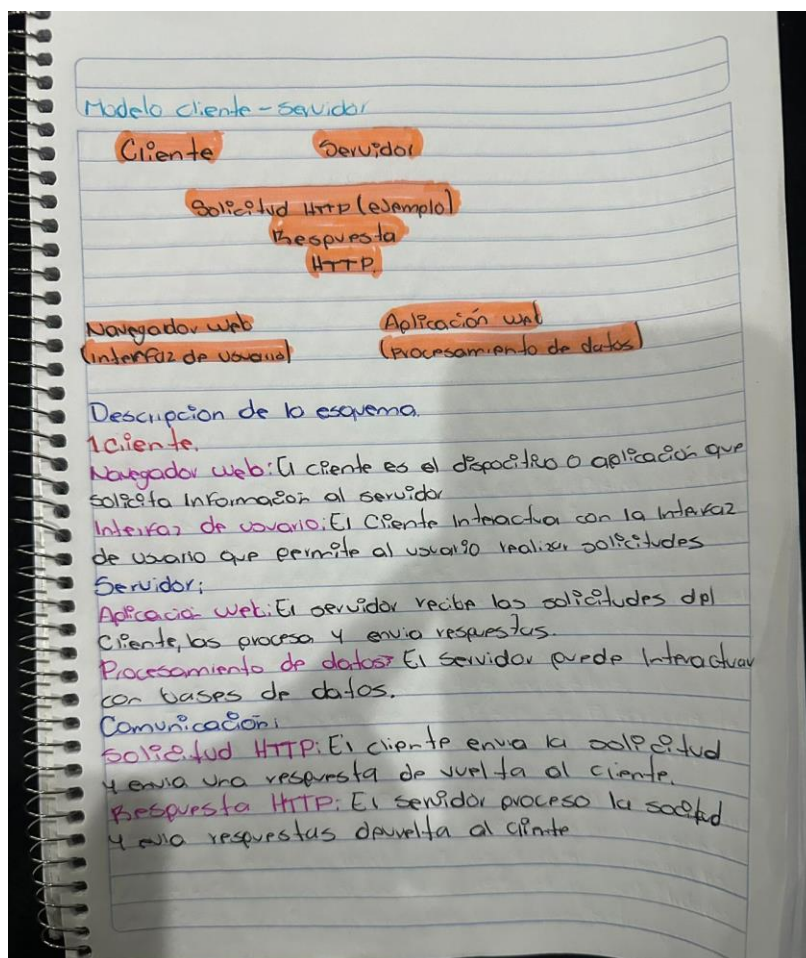 Modelo cliente - servidor
Cliente Servidor
Solicitud HTTP (ejemplo)
Respuesta
HTTP.
Navegador web Aplicación web
(interfaz de usuario) (procesamiento de datos)
Descripcion de lo esquema.
1 Cliente.
Navegador web: El cliente es el dispocitivo o aplicación que
solicita informacion al servidor
Interfaz de usuario: El Cliente Interactua con la interfaz
de usuario que permite al usuario realizar solicitudes
Servidor:
Aplicacion web: El servidor recibe las solicitudes del
Cliente, las procesa y envia respuestas.
Procesamiento de datos: El servidor puede Interactuar
con bases de datos.
Comunicación:
Solicitud HTTP: El cliente envia la solicitud
y envia una respuesta de vuelta al ciente.
Respuesta HTTP: El servidor proceso la
y envia respuestas devuelta al cliente